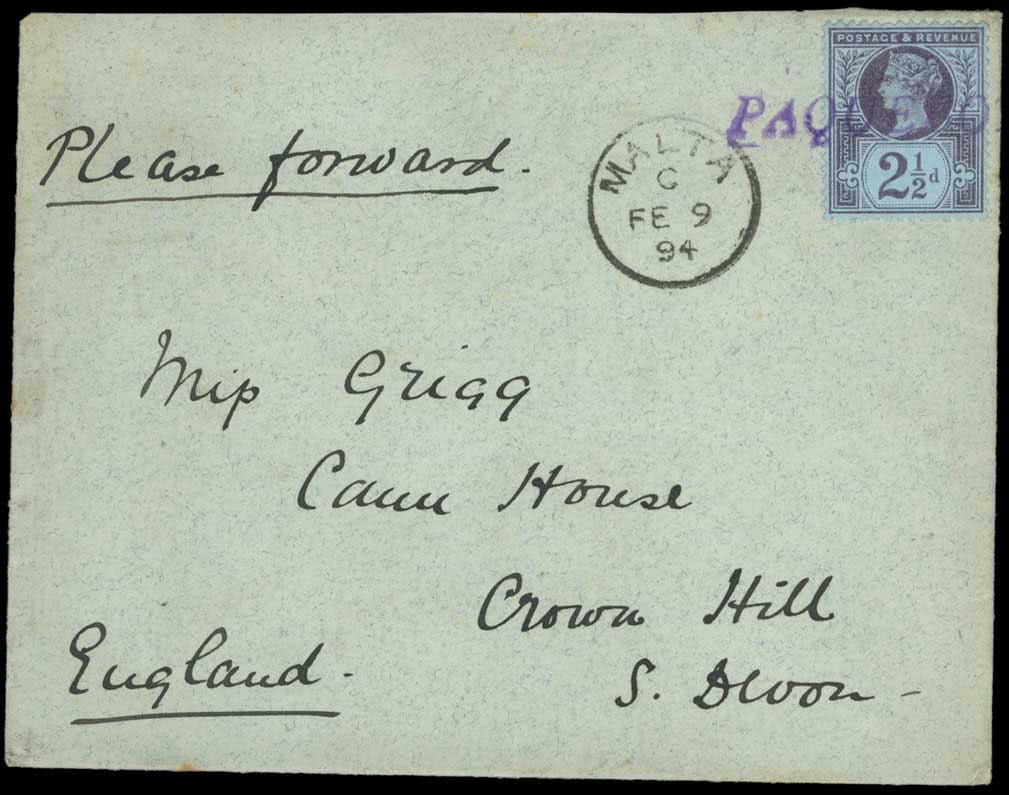 POSTAGE & REVENUE
PAQUEBO
2 1/2 d
MALTA
C
FE 9
94
Please forward.
Miss Grigg
Cann House
Crown Hill
S. Devon -
England.